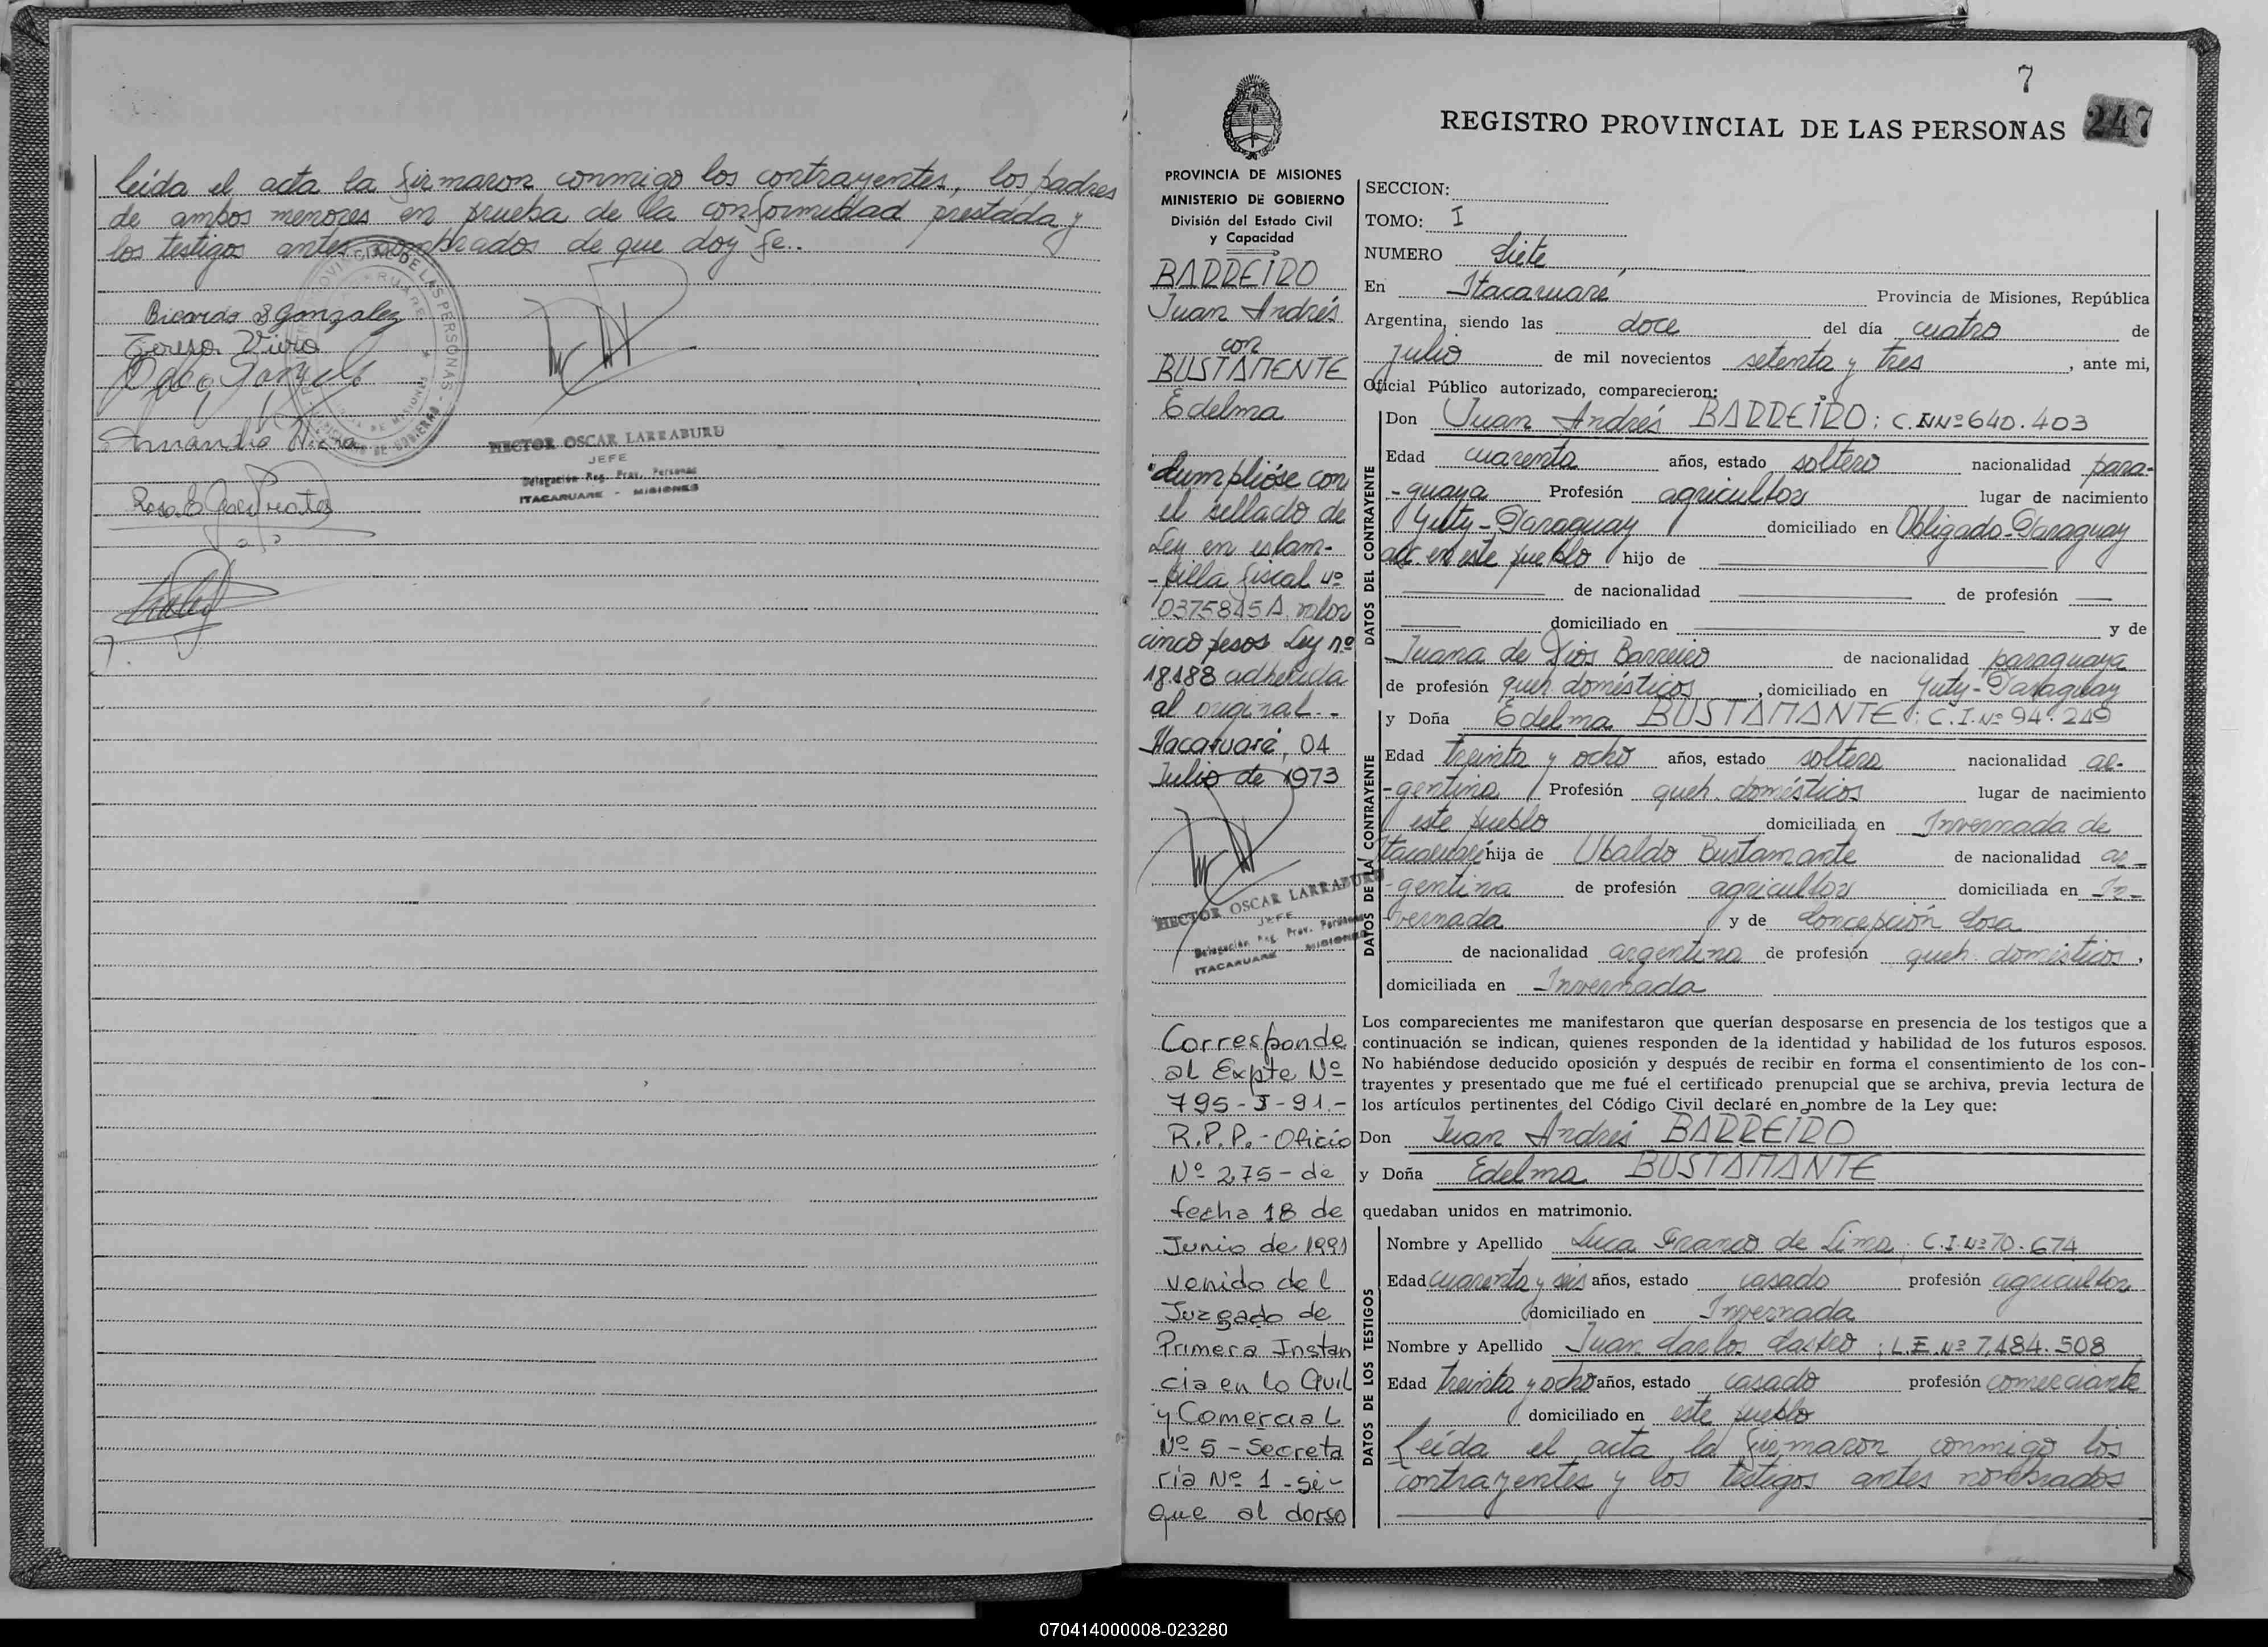 leída el acta la firmaron conmigo los contrayentes, los padres
de ambos menores en prueba de la conformidad prestada y
los testigos antes nombrados de que doy fe.-
Ricardo S Gonzalez
Teresa Viera
HECTOR OSCAR LARRABURU
JEFE
Delegación Reg. Prov. Personas
ITACARUARE - MISIONES
7
247
REGISTRO PROVINCIAL DE LAS PERSONAS
PROVINCIA DE MISIONES
MINISTERIO DE GOBIERNO
División del Estado Civil
y Capacidad
BARREIRO
Juan Andrés
con
BUSTAMENTE
Edelma
Cumplióse con
el sellado de
Ley en estam-
-pilla fiscal nº
0375845A valor
cinco pesos Ley nº
18188 adherida
al original.-
Itacaruaré, 04
Julio de 1973
HECTOR OSCAR LARRABURU
JEFE
Delegación Reg. Prov. Personas
ITACARUARE MISIONES
Corresponde
al Expte Nº
795-J-91.-
R.P.P.-Oficio
Nº 275-de
fecha 18 de
Junio de 1991
venido del
Juzgado de
Primera Instan
cia en lo Civil
y Comercial
Nº 5-Secreta
ría Nº 1-si-
gue al dorso
SECCION:
TOMO: I
NUMERO Siete
En Itacaruaré Provincia de Misiones, República
Argentina, siendo las doce del día cuatro de
julio de mil novecientos setenta y tres, ante mi,
Oficial Público autorizado, comparecieron:
DATOS DEL CONTRAYENTE
Don Juan Andrés BARREIRO: C.I.Nº 640.403
Edad cuarenta años, estado soltero nacionalidad para-
-guaya Profesión agricultor lugar de nacimiento
Yuty-Paraguay domiciliado en Obligado-Paraguay
acc. en este pueblo hijo de
de nacionalidad de profesión
domiciliado en y de
Juana de Dios Barreiro de nacionalidad paraguaya
de profesión queh. domésticos, domiciliado en Yuty-Paraguay
DATOS DE LA CONTRAYENTE
y Doña Edelma BUSTAMANTE: C.I.Nº 94.249
Edad treinta y ocho años, estado soltera nacionalidad ar-
-gentina Profesión queh. domésticos lugar de nacimiento
este pueblo domiciliada en Invernada de
Itacaruaré hija de Ubaldo Bustamante de nacionalidad ar-
-gentina de profesión agricultor domiciliada en In-
vernada y de Concepción Sosa
de nacionalidad argentina de profesión queh. domésticos,
domiciliada en Invernada
Los comparecientes me manifestaron que querían desposarse en presencia de los testigos que a
continuación se indican, quienes responden de la identidad y habilidad de los futuros esposos.
No habiéndose deducido oposición y después de recibir en forma el consentimiento de los con-
trayentes y presentado que me fué el certificado prenupcial que se archiva, previa lectura de
los artículos pertinentes del Código Civil declaré en nombre de la Ley que:
Don Juan Andrés BARREIRO
y Doña Edelma BUSTAMANTE
quedaban unidos en matrimonio.
DATOS DE LOS TESTIGOS
Nombre y Apellido Luca Franco de Lima; C.I.Nº 70.674
Edad cuarenta y seis años, estado casado profesión agricultor
domiciliado en Invernada
Nombre y Apellido Juan Carlos Castro; L.E.Nº 7.484.508
Edad treinta y ocho años, estado casado profesión comerciante
domiciliado en este pueblo
Leída el acta la firmaron conmigo los
contrayentes y los testigos antes nombrados
070414000008-023280